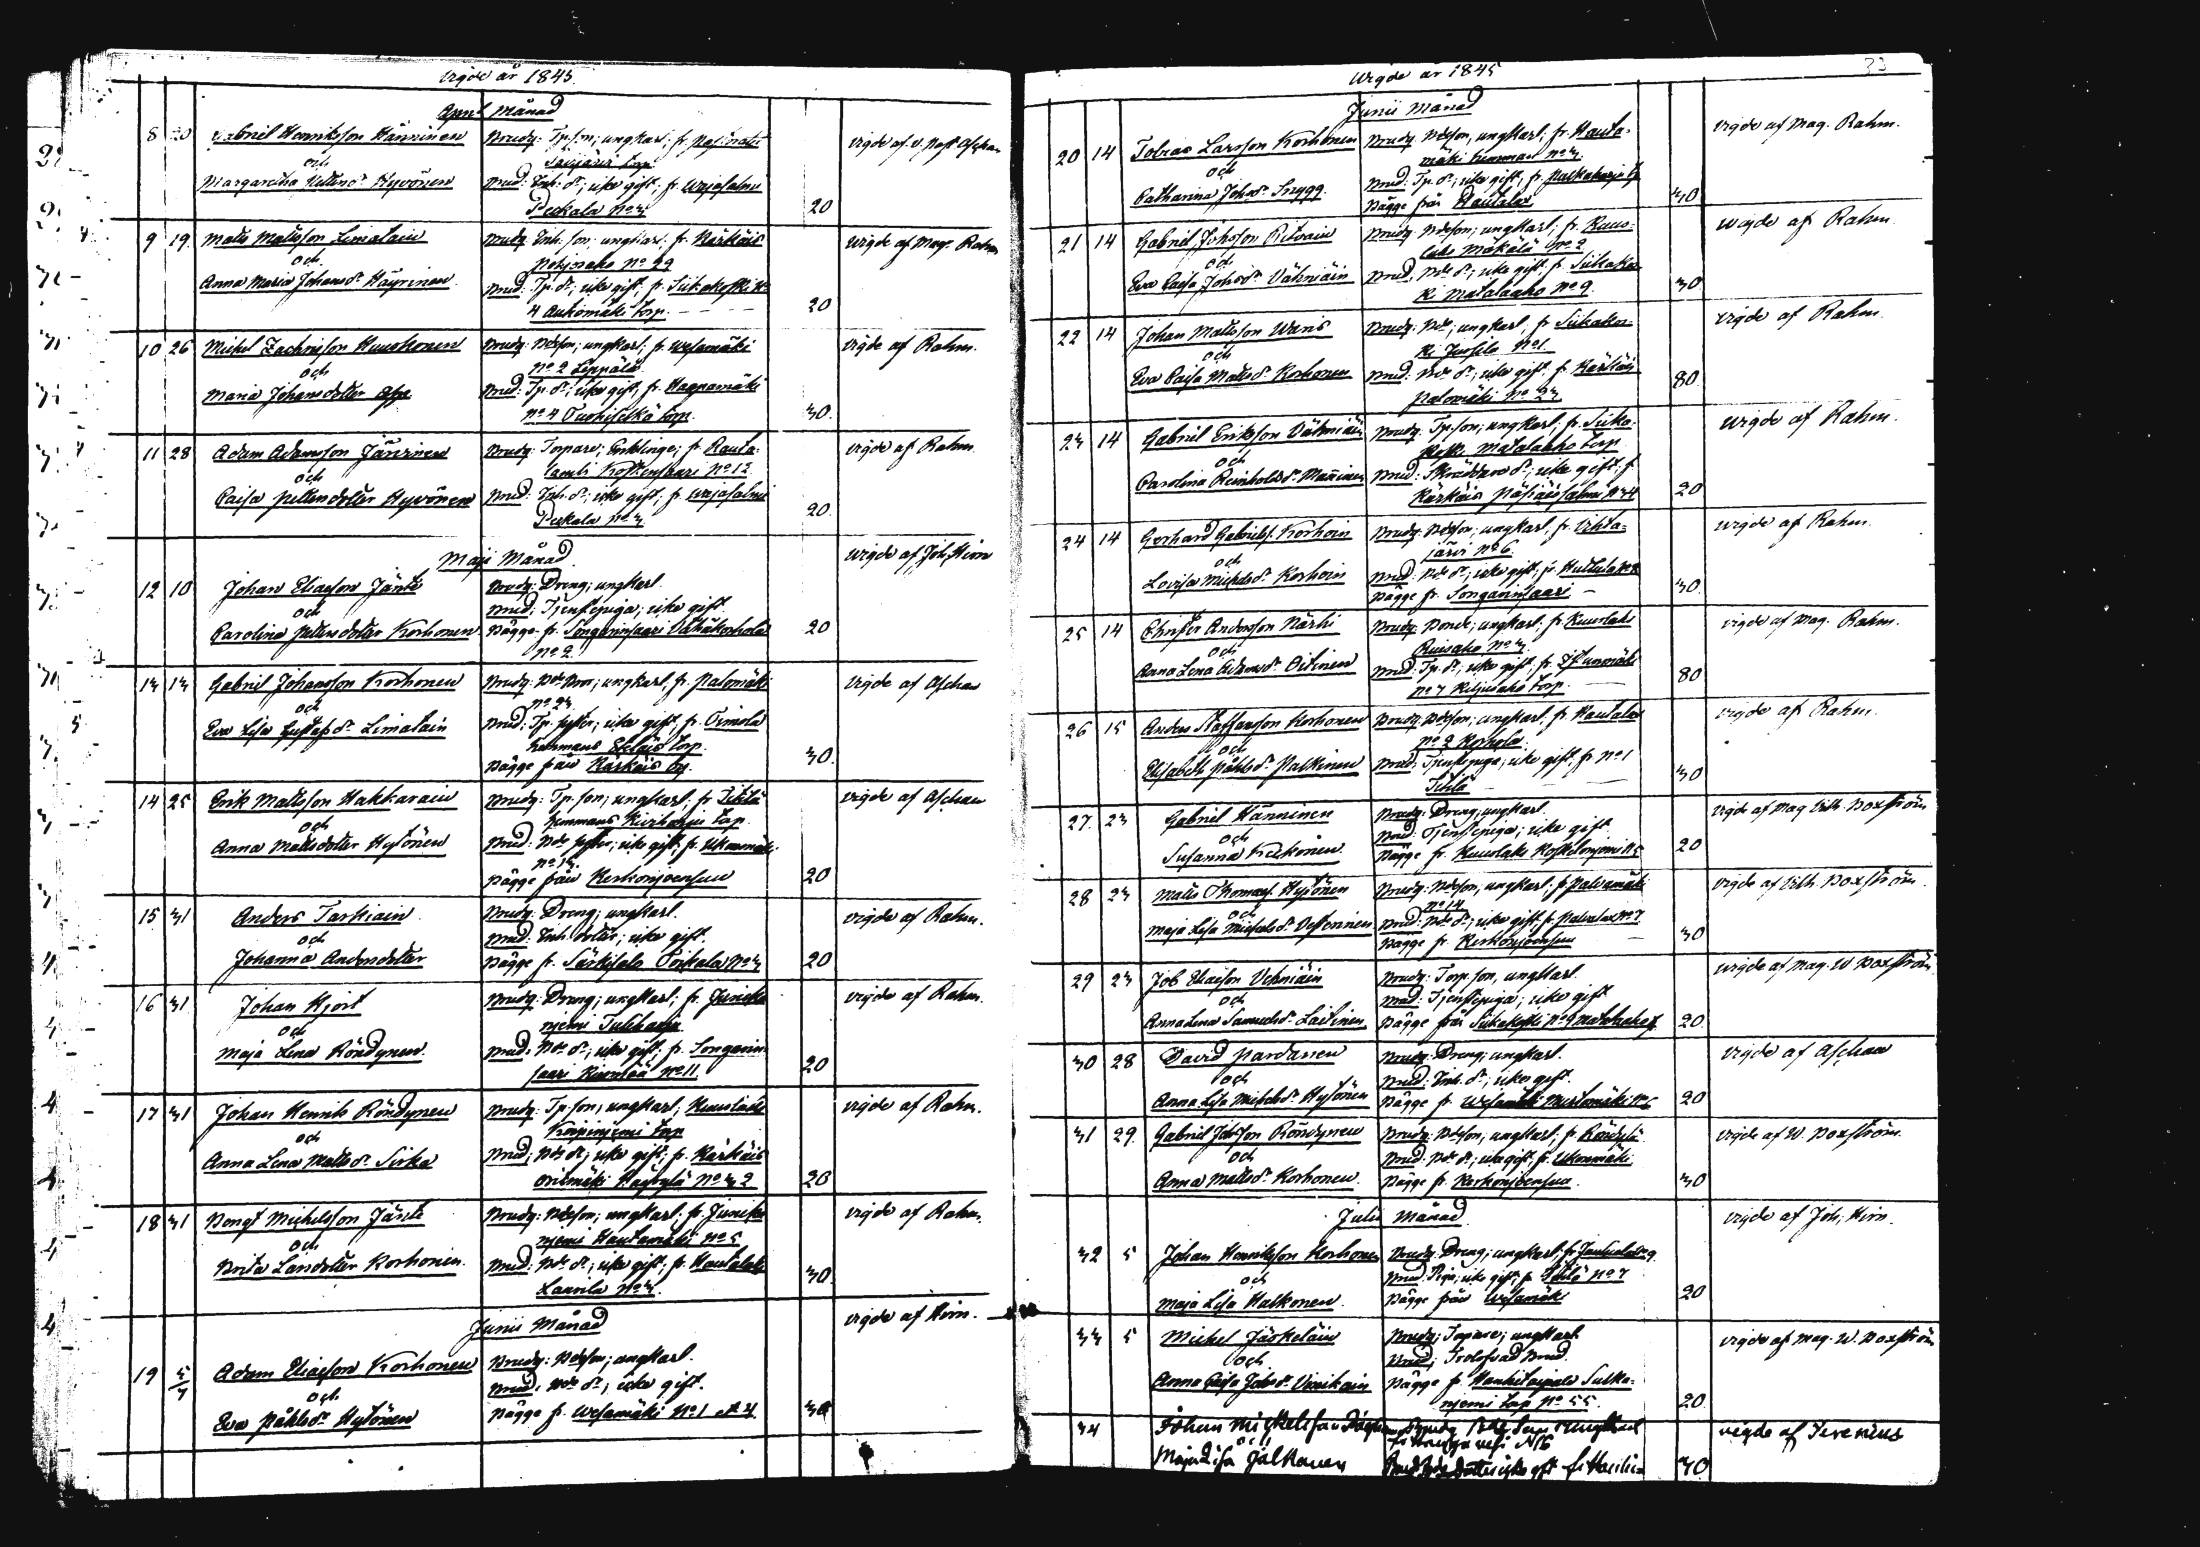 Vigde år 1845.
April Månad
8 20 Gabriel Henriksson Hänninen
och
Margaretha Petters dr Hyvönen
Brudg: Tp. son; ungkarl; fr.
Brud: Inh. dr; icke gift; fr. Wesasalmi
Pekkala No 3
20
vigde af v. Past. Aschan
9 19 Matts Mattsson Limatain
och
Anna Maria Johans dr Häyrinen
Brudg: Inh. son; ungkarl; fr. Kärkäis
Pohjosaho No 29
Brud: Tp. dr; icke gift; fr. Siikakoski No
4 Aukomäki torp.
20
vigde af Mag. Rahm
10 26 Michel Zachrisson Huuskonen
och
Maria Johansdotter
Brudg: Bdeson; ungkarl; fr. Wesamäki
No 2 Leppälä
Brud: Tp. dr; icke gift, fr. Haapamäki
No 4 torp.
30.
vigde af Rahm.
11 28 Adam Adamsson Jänninen
och
Caisa Pettersdotter Hyvönen
Brudg: Torpare; Enklinge; fr. Rauta-
lambi Koskensaari No 12.
Brud: Inh. dr; icke gift; fr. Wesasalmi
Pekkala No 3
20.
vigde af Rahm
Maji Månad
12 10 Johan Eliasson Jänte
och
Carolina Pettersdotter Korhonen
Brudg: Dreng; ungkarl.
Brud: Tjenstepiga; icke gift.
Bägge fr. Songarinsaari Vähäkorhola
No 2.
20
vigde af Joh. Hirn
13 13 Gabriel Johansson Korhonen
och
Eva Lisa Gustafs dr Limatain
Brudg: Bde Bror; ungkarl, fr. Palomäki
No 23
Brud: Tp. syster; icke gift, fr. Oimola
hemmans torp.
Bägge från Kärkäis by.
30.
vigde af Aschan
14 25 Erik Mattsson Hakkarain
och
Anna Mattsdotter Hytönen
Brudg: Tp. son; ungkarl; fr. Tihlä
hemmans Kiviharju torp.
Brud: Bde syster; icke gift, fr. Ukonmäki
No 13.
Bägge från Kerkonjoensuu
20
vigde af Aschan
15 31 Anders Tarkiain
och
Johanna Andersdotter
Brudg: Dreng; ungkarl.
Brud: Inh. dotter; icke gift.
Bägge fr. Särkisalo Toikala No 3
20
vigde af Rahm.
16 31 Johan Hjort
och
Maja Lena Röndynen.
Brudg: Dreng; ungkarl; fr.
njemi
Brud: Bde dr; icke gift, fr. Songarin-
saari No 11.
20
vigde af Rahm.
17 31 Johan Henrik Röndynen
och
Anna Lena Matts dr Sirka
Brudg: Tp. son; ungkarl; Kuuslaks
torp
Brud; Bde dr; icke gift; fr. Kärkäis
Orimäki No 32
20
vigde af Rahm.
18 31 Bengt Michelsson Jänte
och
Brita Larsdotter Korhonen.
Brudg: Bdeson; ungkarl; fr.
njemi Hautamäki No 5
Brud: Bde dr; icke gift; fr. Hautalaks
Laurila No 3.
30.
vigde af Rahm.
Junii Månad
19 5/7 Adam Eliasson Korhonen
och
Eva Påhls dr Hytönen
Brudg: Bdeson; ungkarl.
Brud: Bde dr; icke gift.
Bägge fr. Wesamäki No 1 et 4
30
vigde af Hirn.
Vigde år 1845
Junii Månad
20 14 Tobias Larsson Korhonen
och
Catharina Johs dr Snygg.
Brudg: Bdeson, ungkarl; fr. Hauta-
mäki hemman No 3.
Brud: Tp. dr; icke gift, fr. Palkaharju
Bägge från Hautalax
30
vigde af Mag. Rahm.
21 14 Gabriel Johsson Ritvain
och
Eva Caisa Johs dr Vähniäin
Brudg: Bdeson; ungkarl; fr. Kuus-
laks Mäkälä No 2
Brud: Bde dr; icke gift, fr. Siikakos-
ki Matalaaho No 9.
30
vigde af Rahm
22 14 Johan Mattsson Waris
och
Eva Caisa Matts dr Korhonen
Brudg: Bde; ungkarl, fr. Siikakos-
ki Jussila No 1
Brud: Bde dr; icke gift, fr. Kärkäis
Palomäki No 23
80
vigde af Rahm.
23 14 Gabriel Eriksson Vähniäin
och
Carolina Reinholds dr Manninen
Brudg: Tp. son; ungkarl; fr. Siika-
koski Matalaaho torp
Brud: Skräddare dr; icke gift; f.
Kärkäis No 34
20
vigde af Rahm.
24 14 Gerhard Gabriels. Korhoin
och
Lovisa Michels dr Korhoin
Brudg: Bdeson; ungkarl, fr. Vihta-
järvi No 6.
Brud: Bde dr; icke gift; fr. Huttula No 8
Bägge fr. Songarinsaari
30.
vigde af Rahm.
25 14 Christer Andersson Närhi
och
Anna Lena Adams dr Oitinen
Brudg: Bonde; ungkarl; fr. Kuuslaks
Ruisaho No 3.
Brud: Tp. dr; icke gift, fr.
No 7 torp.
80
vigde af Mag. Rahm.
26 15 Anders Staffansson Korhonen
och
Elisabeth Påhls dr Palkinen
Brudg: Bdeson; ungkarl, fr. Hautalax
No 2 Korhola
Brud: Tjenstepiga; icke gift, fr No 1
Tihlä
30
vigde af Rahm.
27. 23 Gabriel Hänninen
och
Susanna Kekkonen
Brudg: Dreng; ungkarl.
Brud: Tjenstepiga; icke gift
Bägge fr. Kuuslaks
20
vigde af Mag Vilh. Boxström
28 23 Matts Thomas. Hytönen
och
Maja Lisa Michels dr Vesterinen
Brudg: Bdeson, ungkarl; fr. Palvamäki
No 14
Brud: Bde dr; icke gift, fr. Palvalax No 7
Bägge fr Kerkonjoensuu
30
vigde af Vilh. Boxström.
29 23 Job Eliasson Vehniäin
och
Anna Lena Samuels dr Laitinen
Brudg: Torp. son, ungkarl.
Brud: Tjenstepiga; icke gift
Bägge från Siikakoski No 9 Matalaaho
20.
vigde af Mag. W Boxström
30 28 David Pardanen
och
Anna Lisa Michels dr Hytönen
Brudg: Dreng; ungkarl.
Brud: Inh. dr; icke gift.
Bägge fr. Wesamäki Mustamäki No 6
20
vigde af Aschan
31 29. Gabriel Johsson Röndynen
och
Anna Matts dr Korhonen.
Brudg: Bdeson, ungkarl; fr Röndylä
Brud: Bde dr; icke gift, fr. Ukonmäki
Bägge fr. Kerkonjoensuu.
30
vigde af W. Boxström.
Julii Månad
32 5 Johan Henriksson Korhonen
och
Maja Lisa Halkonen.
Brudg: Dreng; ungkarl; fr
Brud: Piga; icke gift; fr. Tihlä No 7
Bägge från Wesamäki
20
vigde af Joh. Hirn.
33 5 Michel Jäskeläin
och
Anna Caisa Johs dr Vinikain
Brudg: Torpare; ungkarl.
Brud; Trolofvad Brud.
Bägge fr. Hankataipale Sulka-
njemi torp No 55.
20
vigde af Mag. W. Boxström
34 Johan Mickelsson
Maja Lisa Jalkanen
Brudg Bde Son ungkarl
No 6
Brud Bde dotter icke gift fr
30
vigde af Serenius